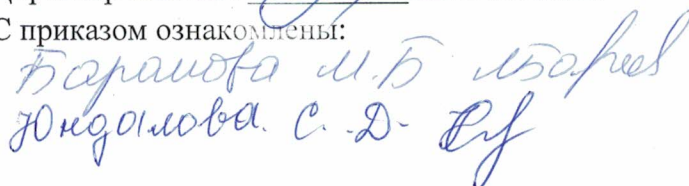 С приказом ознакомлены:
Баранова М.Б
Юндалова. С. Д.